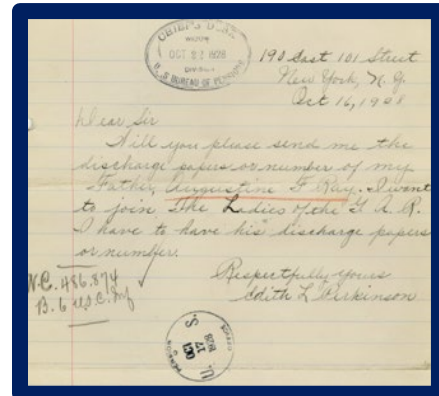 CHIEF'S DESK
WIDOW
OCT 22 1928
DIVISION
U.S. BUREAU OF PENSIONS
190 East 101 Street
New York, N.Y.
Oct 16, 1928
Dear Sir
Will you please send me the
discharge papers or number of my
Father, Augustine F. Ray. I want
to join The Ladies of the G A R.
I have to have his discharge papers
or number.
Respectfully yours
Edith L Perkinson
W.C. 486.874
B. 6 U.S.C. Inf
OCT
17
1928